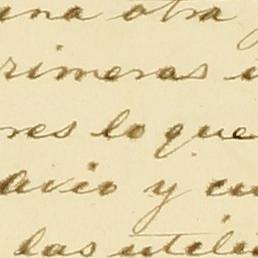 una otra
rimeras
res lo que
avio y
las utili